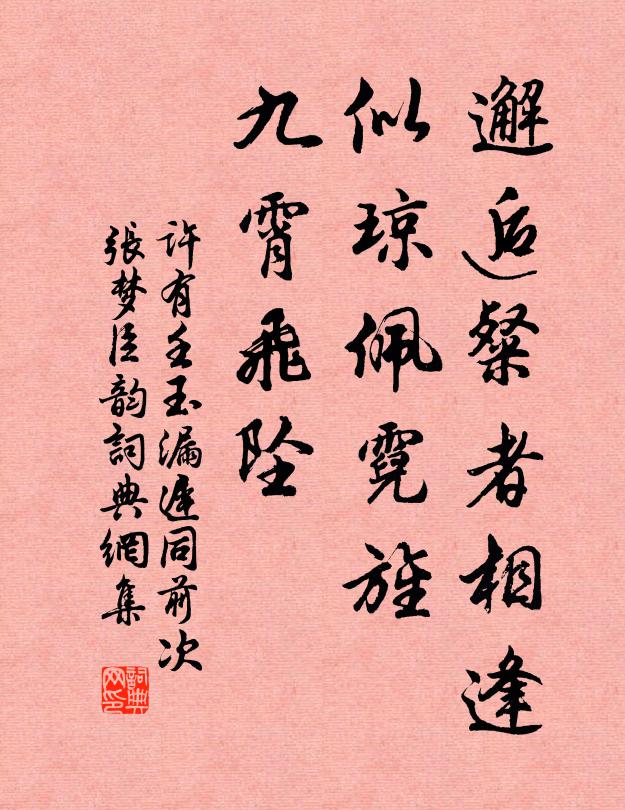 邂逅粲者相逢
似琼佩霓旌
九霄飛坠
许有壬玉漏遲同前次
張梦臣韵詞典網集
詞典网印